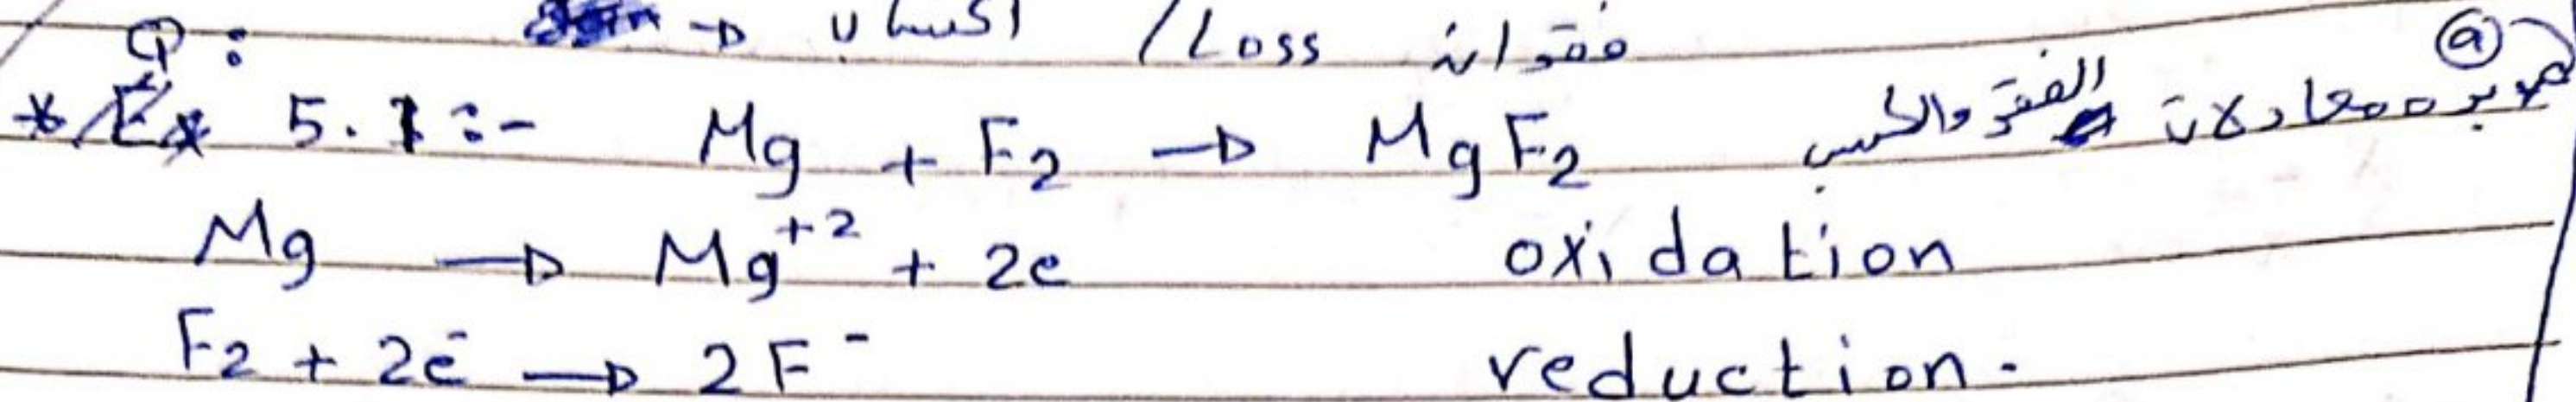 Q: → اكتساب / Loss فقدان
* Ex 5.1:- Mg + F₂ → MgF₂ معادلات الفقد والكسب ⓐ
Mg → Mg⁺² + 2e oxidation
F₂ + 2e⁻ → 2F⁻ reduction.